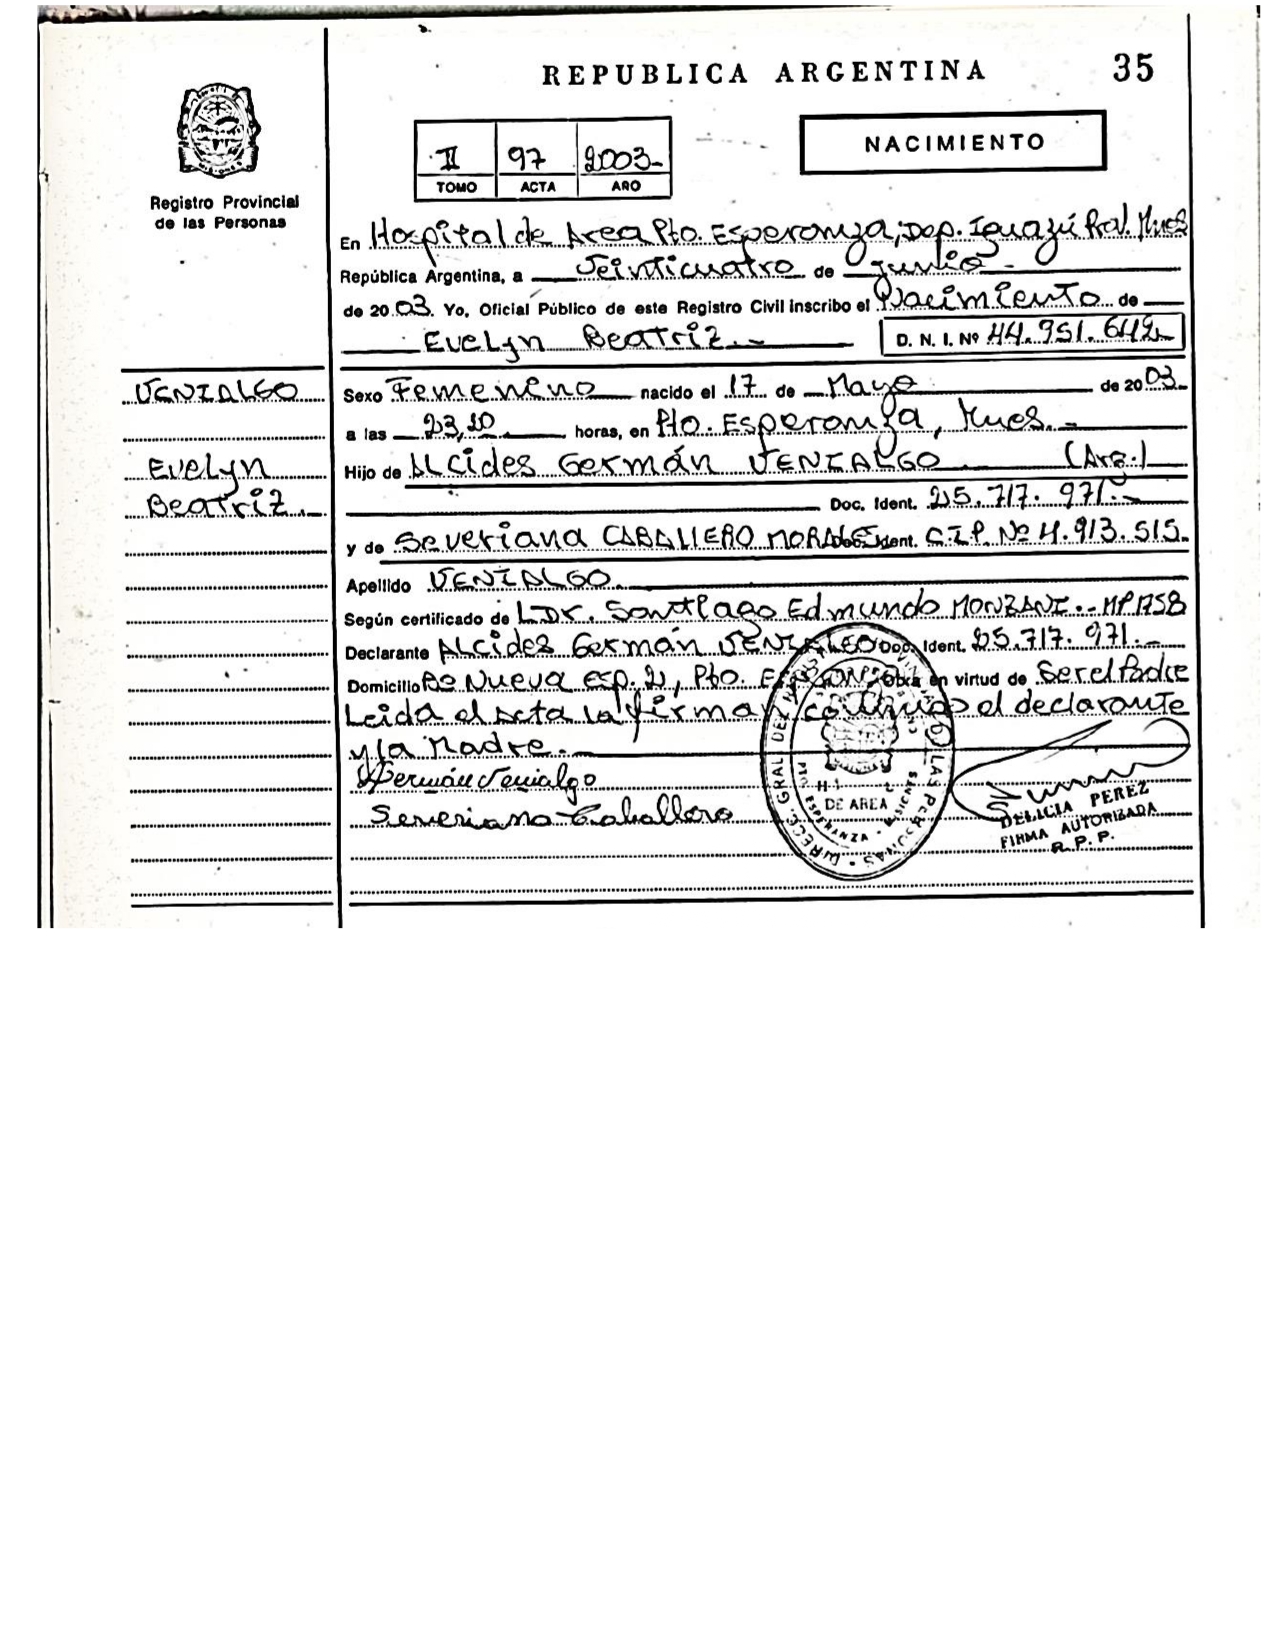 REPUBLICA ARGENTINA 35
Registro Provincial
de las Personas
II 97 2003-
TOMO ACTA AÑO
NACIMIENTO
En Hospital de Area Pto. Esperanza, Dep. Iguazú Prov. Mnes
República Argentina, a Veinticuatro de junio.-
de 2003. Yo, Oficial Público de este Registro Civil inscribo el Nacimiento de
Evelyn Beatriz.- D. N. I. Nº 44.951.642-
VENIALGO
Evelyn
Beatriz.
Sexo Femenino nacido el 17 de Mayo de 2003-
a las 23,20 horas, en Pto. Esperanza, Mnes.-
Hijo de Alcides Germán VENIALGO (Arg.)
Doc. Ident. 25.717.971.-
y de Severiana CABALLERO MORALES Doc. Ident. C.I.P. Nº 4.913.515.
Apellido VENIALGO
Según certificado de L Dr. Santiago Edmundo MP 1758
Declarante Alcides Germán VENIALGO Doc. Ident. 25.717.971.-
Domicilio Bº Nueva esp. 2, Pto. Obra en virtud de Ser el Padre
Leida el acta la firman el declarante
y la Madre.-
Germán Venialgo
Severiana Caballero
DIRECC. GRAL DEL LAS PERSONAS
DE AREA
PTO. ESPERANZA - MISIONES
DELICIA PEREZ
FIRMA AUTORIZADA
R. P. P.